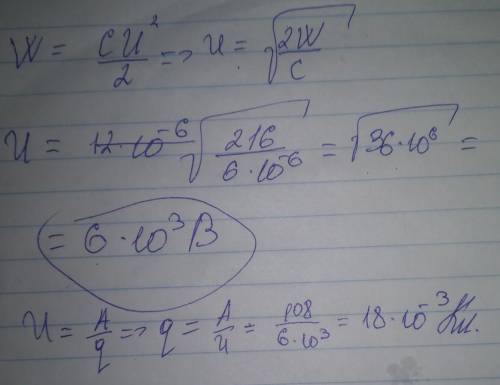 W = CU²/2 => U = √(2W/C)
U = 12·10⁻⁶ √(216/6·10⁻⁶) = √36·10⁶ =
= 6·10³ В
U = A/q => q = A/U = 108/6·10³ = 18·10⁻³ Кл.